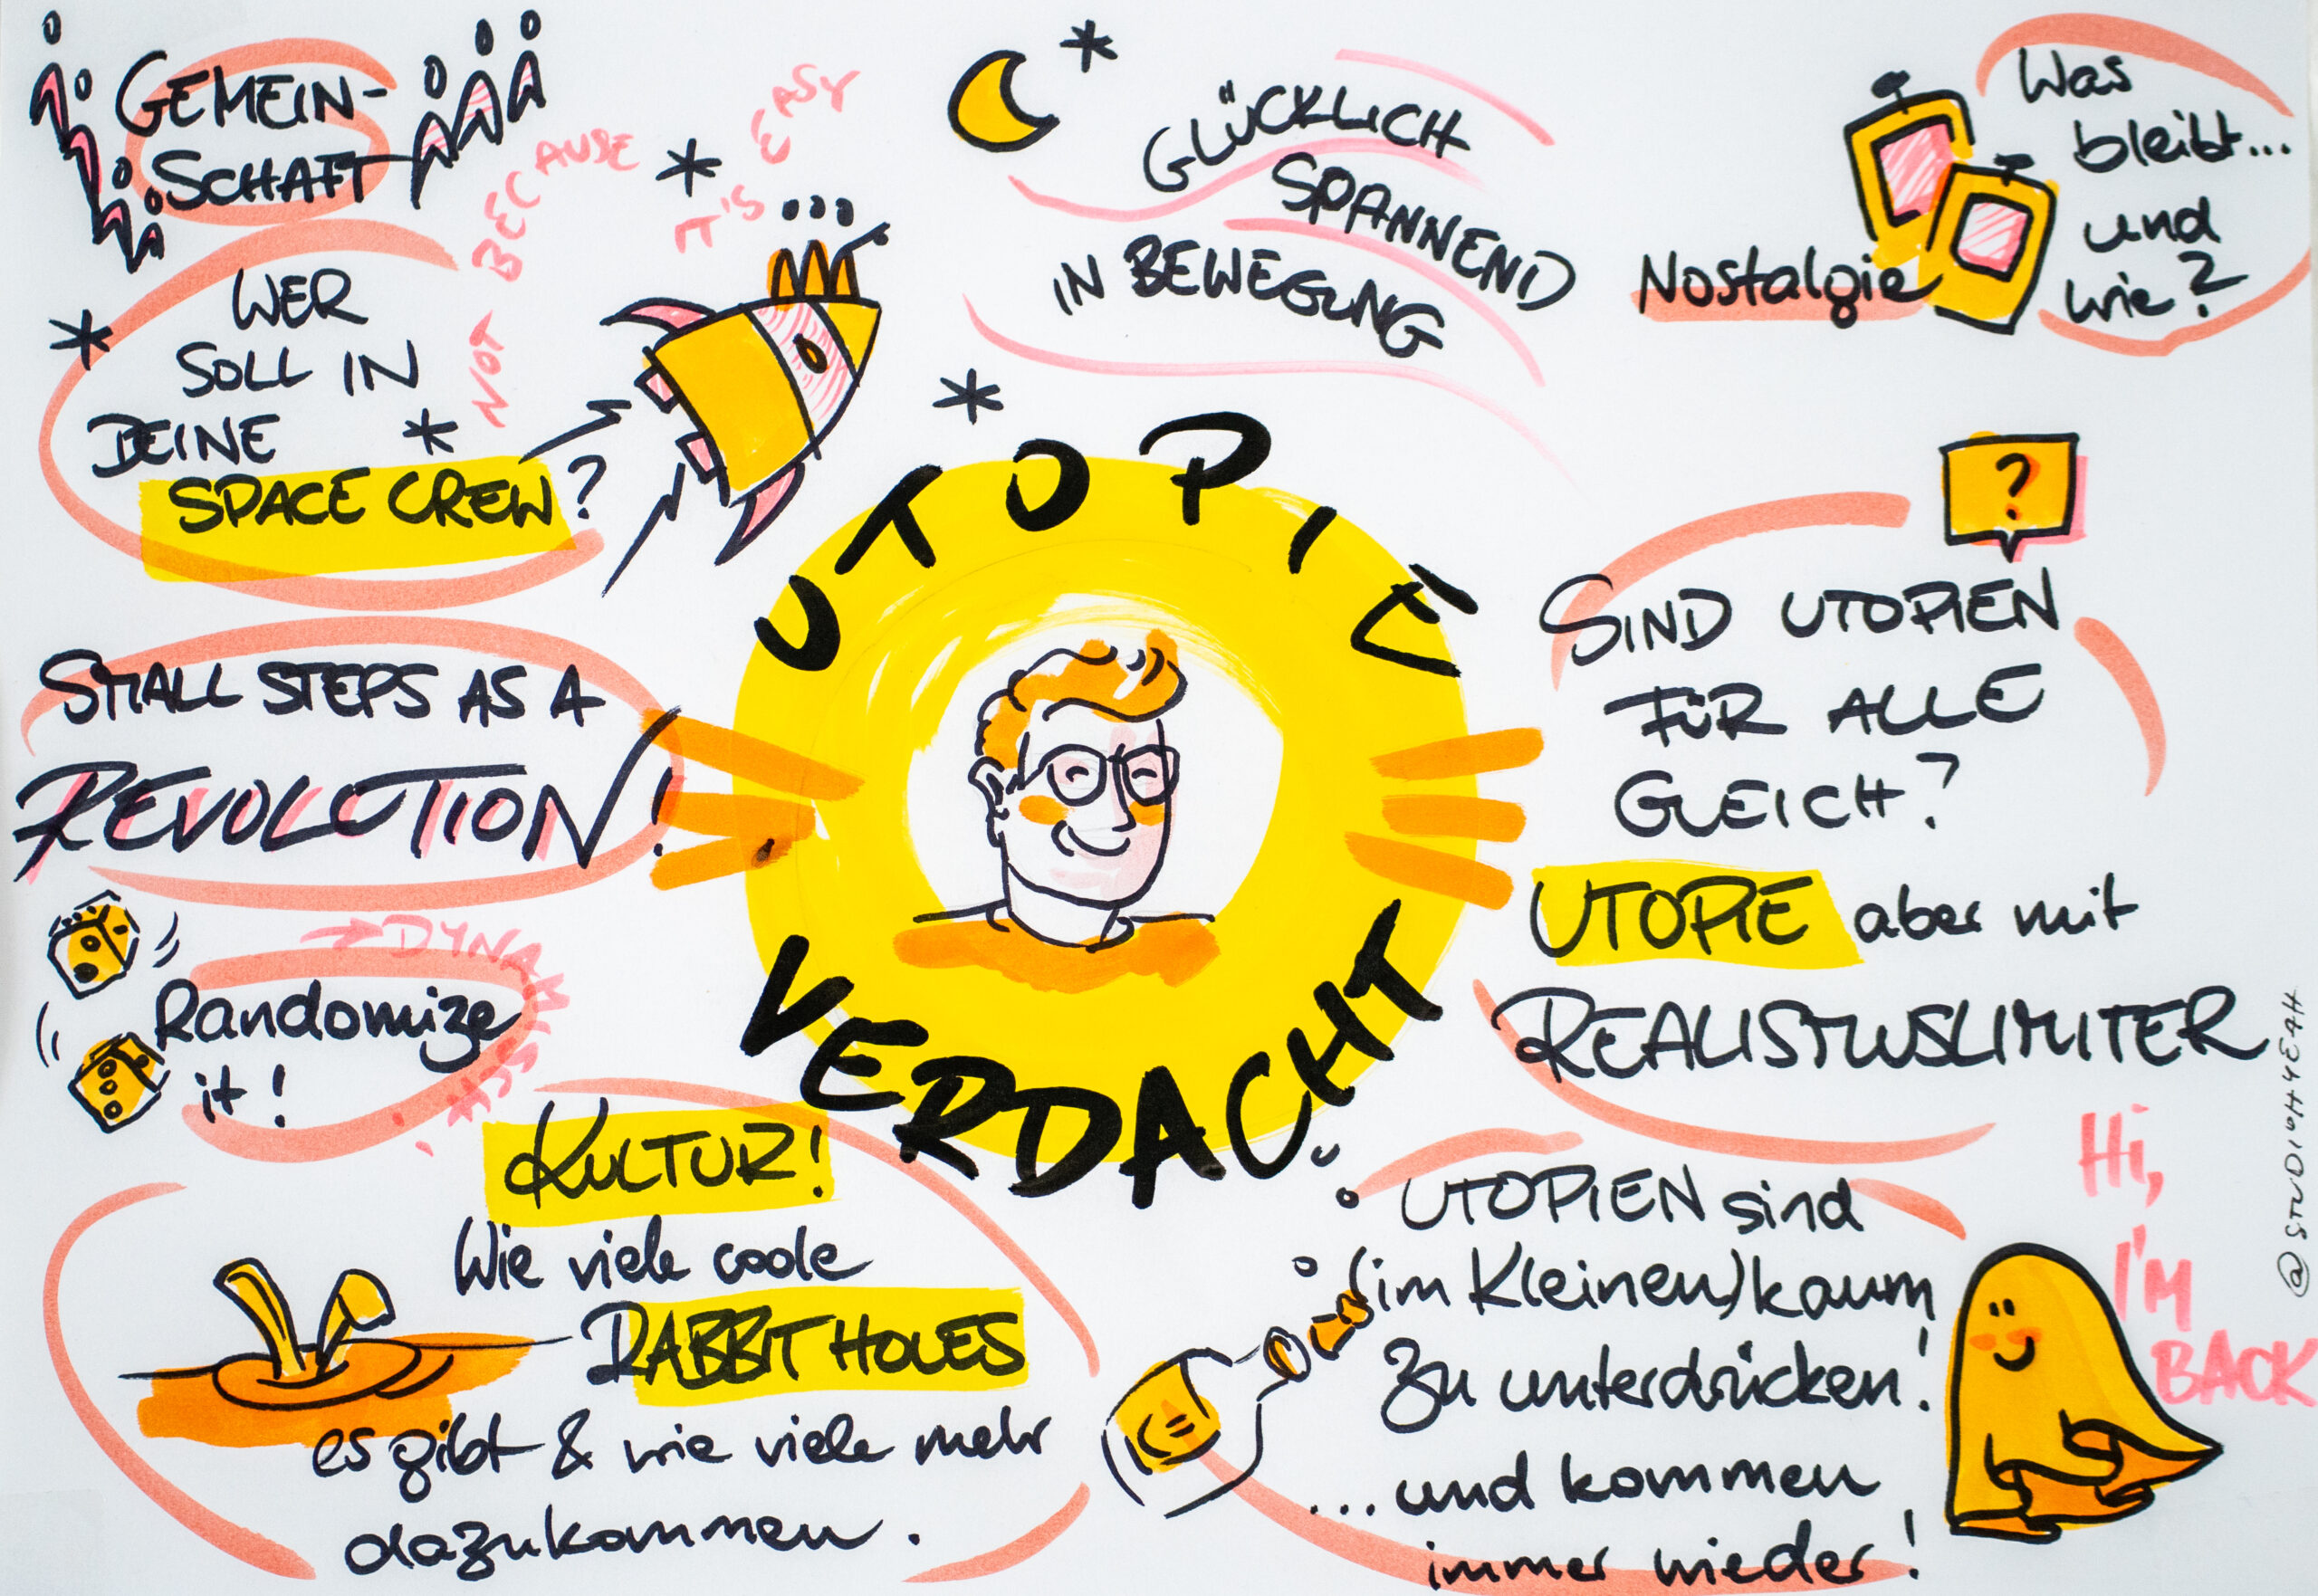 GEMEIN-
SCHAFT
WER
SOLL IN
DEINE
SPACE CREW?
NOT BECAUSE
IT'S EASY
GLÜCKLICH
SPANNEND
IN BEWEGUNG
Nostalgie
Was
bleibt...
und
wie?
UTOPIE
VERDACHT
SMALL STEPS AS A
REVOLUTION!
→ DYNAMISCH!
Randomize
it!
KULTUR!
Wie viele coole
RABBIT HOLES
es gibt & wie viele mehr
dazukommen.
?
SIND UTOPIEN
FÜR ALLE
GLEICH?
UTOPIE aber mit
REALISMUSLIMITER
UTOPIEN sind
(im Kleinen) kaum
zu unterdrücken!
...und kommen
immer wieder!
Hi,
I'M
BACK